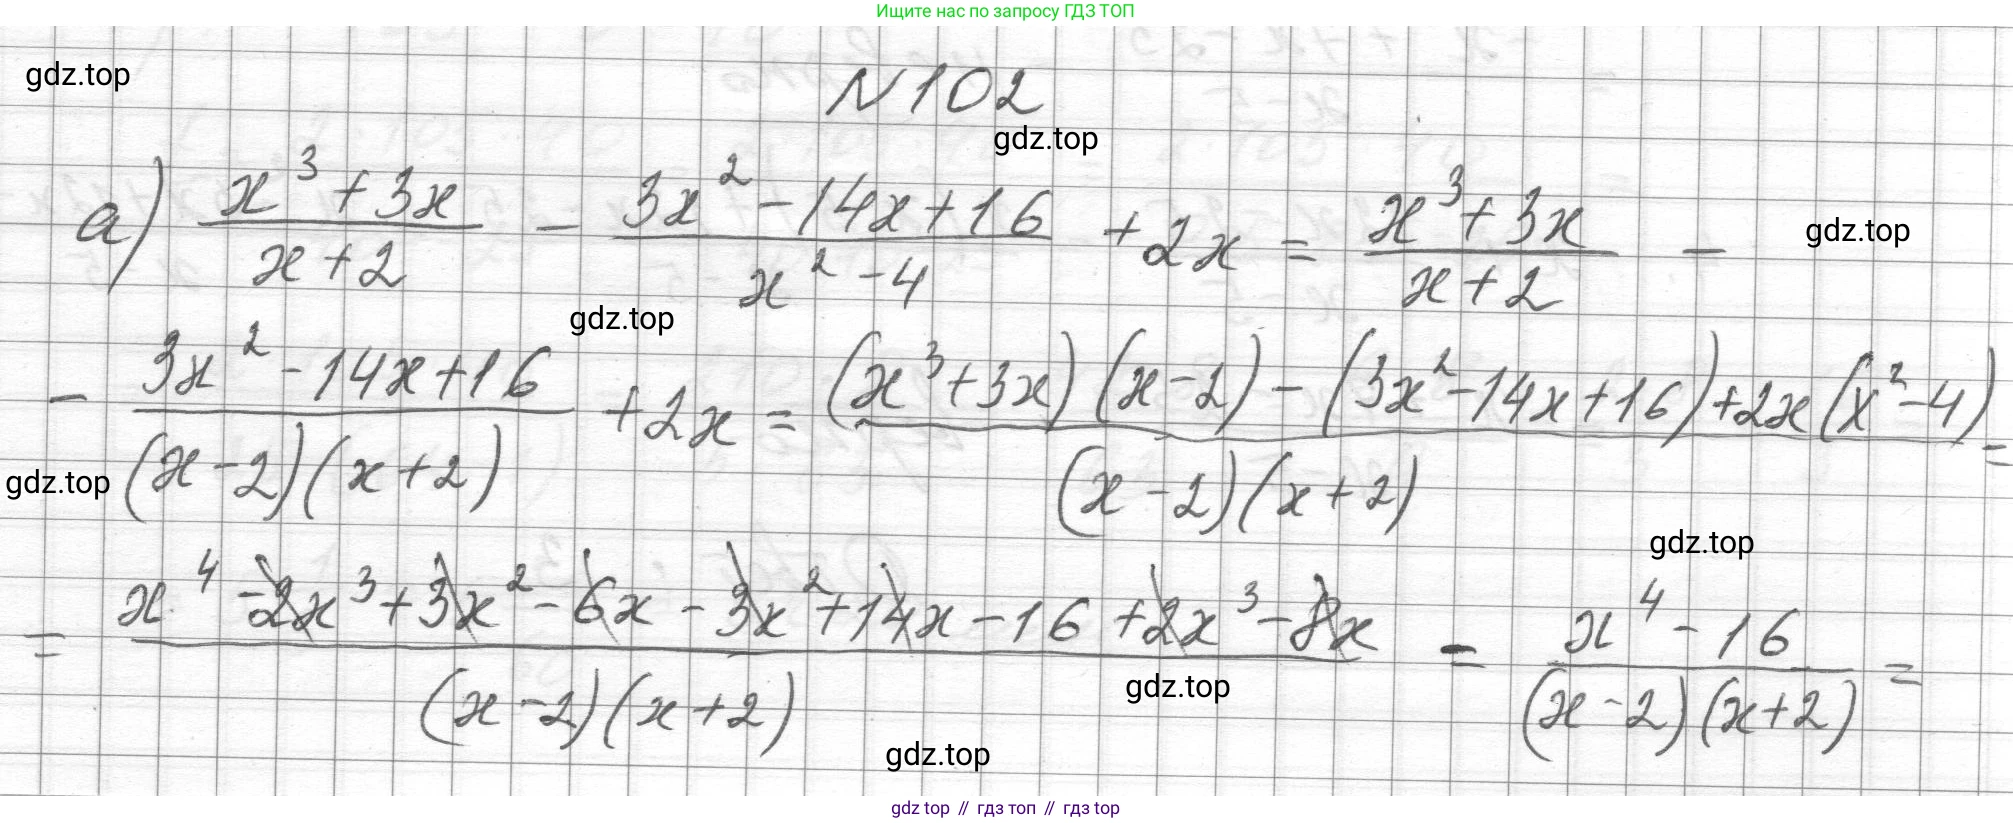 Ищите нас по запросу ГДЗ ТОП
gdz.top
N 102
gdz.top
а) (x³+3x)/(x+2) - (3x²-14x+16)/(x²-4) + 2x = (x³+3x)/(x+2) -
gdz.top
gdz.top
- (3x²-14x+16)/((x-2)(x+2)) + 2x = ((x³+3x)(x-2)-(3x²-14x+16)+2x(x²-4))/((x-2)(x+2)) =
gdz.top
gdz.top
= (x⁴-2x³+3x²-6x-3x²+14x-16+2x³-8x)/((x-2)(x+2)) = (x⁴-16)/((x-2)(x+2)) =
gdz.top
gdz.top
gdz top // гдз топ // гдз top